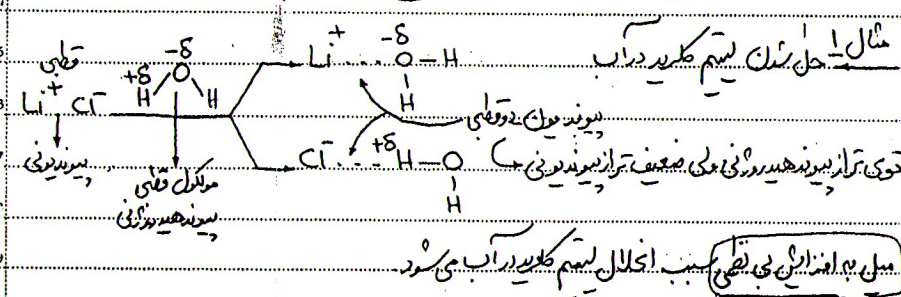 مثال 1 حل شدن لیتیم کلرید در آب
قطبی
Li⁺ Cl⁻
پیوند یونی
-δ
O
+δ
H H
مولکول قطبی
پیوند هیدروژنی
Li⁺ ... -δ O-H
H
پیوند یون-دوقطبی
Cl⁻ ... +δ H-O
H
قوی تر از پیوند هیدروژنی ولی ضعیف تر از پیوند یونی
میل به افزایش بی نظمی سبب انحلال لیتیم کلرید در آب می شود.